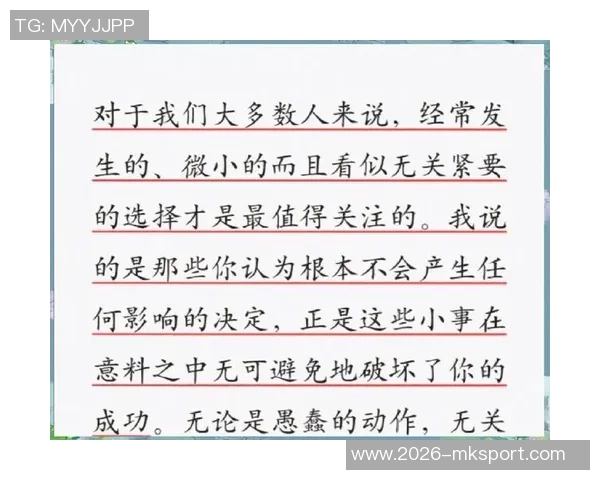 TG: MYYJJPP
对于我们大多数人来说，经常发
生的、微小的而且看似无关紧要
的选择才是最值得关注的。我说
的是那些你认为根本不会产生任
何影响的决定，正是这些小事在
意料之中无可避免地破坏了你的
成功。无论是愚蠢的动作，无关
www.2026-mksport.com